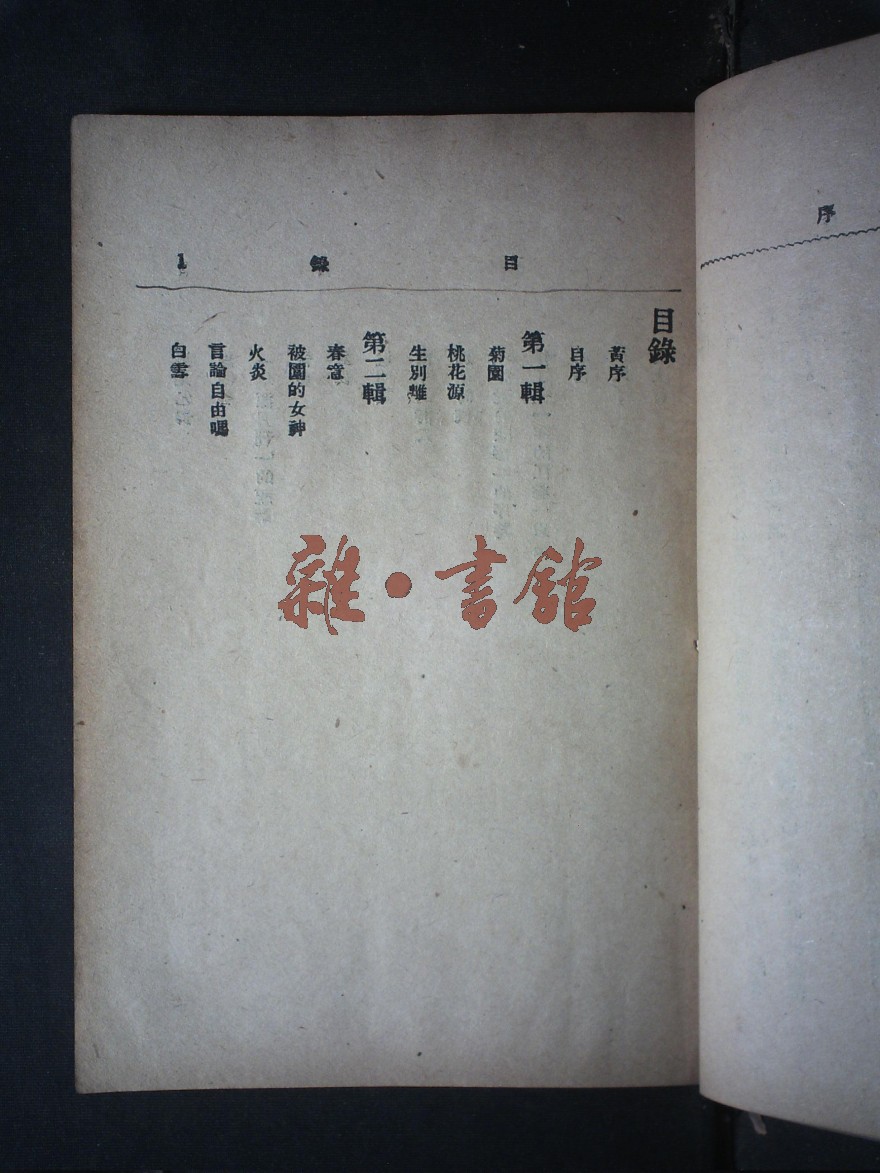 序
目 錄 1
目錄
黃序
自序
第一輯
菊園
桃花源
生別離
第二輯
春意
被圍的女神
火炎
言論自由嗎
白雲
雜·書館